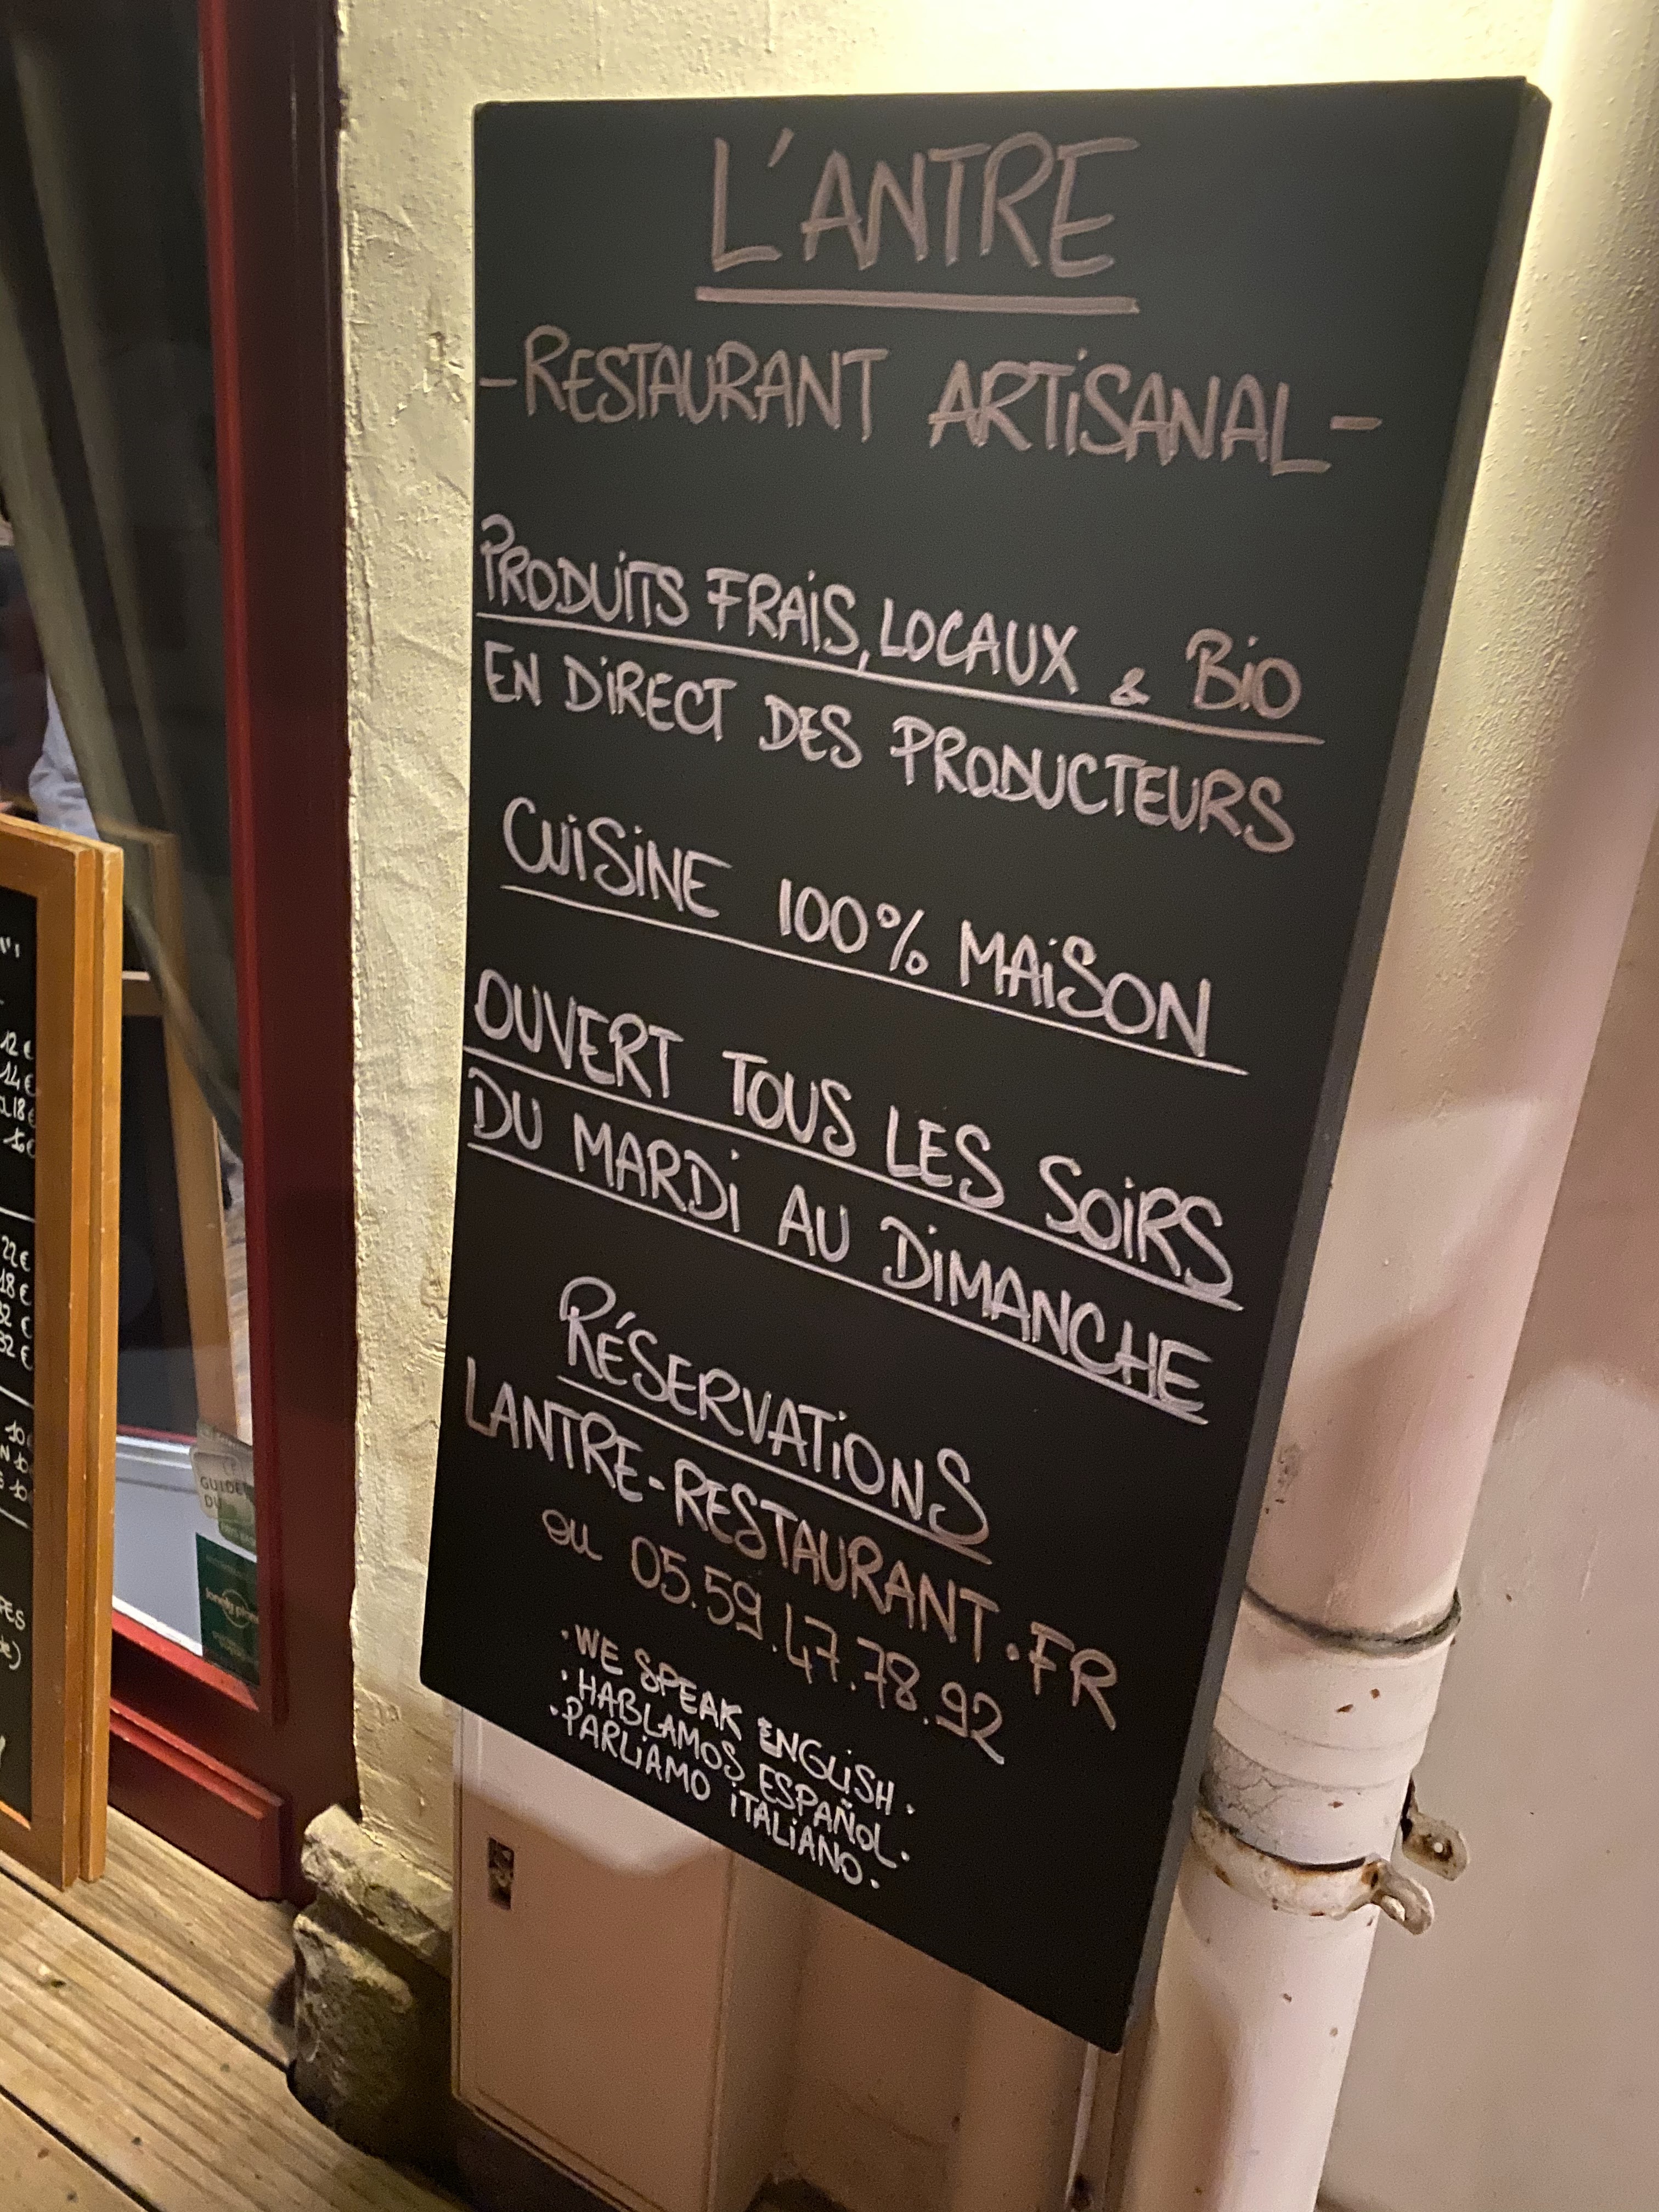 L'ANTRE
-RESTAURANT ARTiSANAL-
PRODUiTS FRAiS, LOCAUX & BiO
EN DiRECT DES PRODUCTEURS
CUiSiNE 100% MAiSON
OUVERT TOUS LES SOiRS
DU MARDi AU DiMANCHE
RÉSERVATiONS
LANTRE-RESTAURANT.FR
ou 05.59.47.78.92
·WE SPEAK ENGLiSH·
·HABLAMOS ESPAÑOL·
·PARLiAMO iTALiANO·
12€
14€
18€
22€
18€
32€
32€
GUIDE
DU
lonely planet